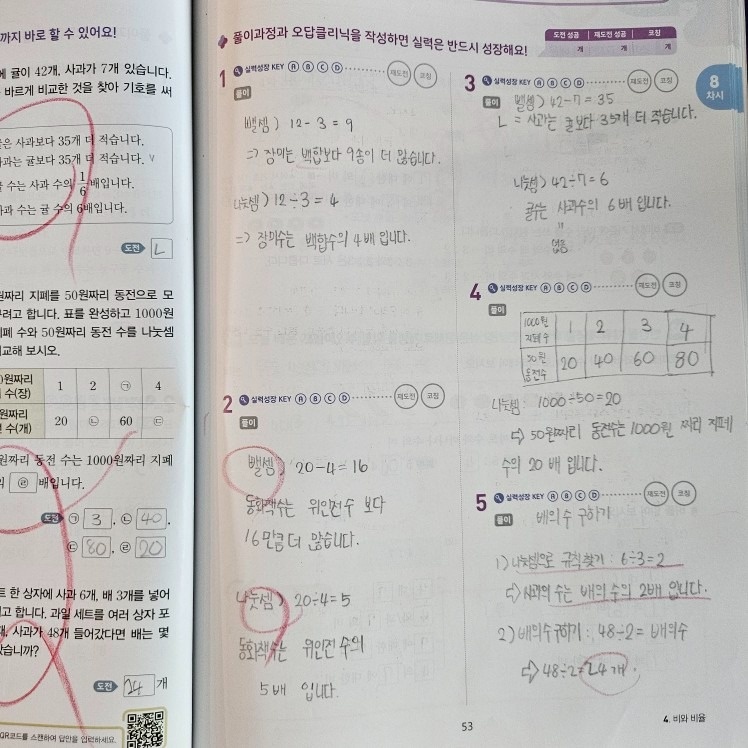 까지 바로 할 수 있어요!
에 귤이 42개, 사과가 7개 있습니다.
바르게 비교한 것을 찾아 기호를 써
은 사과보다 35개 더 적습니다.
과는 귤보다 35개 더 적습니다. v
수는 사과 수의 1/6배입니다.
과 수는 귤 수의 6배입니다.
도전 ㄴ
원짜리 지폐를 50원짜리 동전으로 모
려고 합니다. 표를 완성하고 1000원
폐 수와 50원짜리 동전 수를 나눗셈
교해 보시오.
원짜리 수(장) 1 2 ㉠ 4
원짜리 수(개) 20 ㉡ 60 ㉢
원짜리 동전 수는 1000원짜리 지폐
의 ㉣ 배입니다.
도전 ㉠ 3, ㉡ 40,
㉢ 80, ㉣ 20
트 한 상자에 사과 6개, 배 3개를 넣어
고 합니다. 과일 세트를 여러 상자 포
사과가 48개 들어갔다면 배는 몇
습니까?
도전 24 개
QR코드를 스캔하여 답안을 입력하세요.
풀이과정과 오답클리닉을 작성하면 실력은 반드시 성장해요!
도전 성공 재도전 성공 코칭
개 개 개
8
차시
1 실력성장 KEY A B C D 재도전 코칭
풀이
뺄셈) 12-3=9
⇒ 장미는 백합보다 9송이 더 많습니다.
나눗셈) 12÷3=4
⇒ 장미수는 백합수의 4배 입니다.
2 실력성장 KEY A B C D 재도전 코칭
풀이
뺄셈) 20-4=16
동화책수는 위인전수 보다
16만큼 더 많습니다.
나눗셈) 20÷4=5
동화책수는 위인전 수의
5배 입니다.
3 실력성장 KEY A B C D 재도전 코칭
풀이
뺄셈) 42-7=35
ㄴ = 사과는 귤보다 35개 더 적습니다.
나눗셈) 42÷7=6
귤수는 사과수의 6배 입니다.
=
없음
4 실력성장 KEY A B C D 재도전 코칭
풀이
1000원 지폐수 1 2 3 4
50원 동전수 20 40 60 80
나눗셈: 1000÷50=20
⇨ 50원짜리 동전수는 1000원 짜리 지폐
수의 20배 입니다.
5 실력성장 KEY A B C D 재도전 코칭
풀이
배의수 구하기
1) 나눗셈으로 규칙찾기: 6÷3=2
⇨ 사과의 수는 배의 수의 2배 입니다.
2) 배의수구하기: 48÷2=배의수
⇨ 48÷2=24개.
53
4. 비와 비율